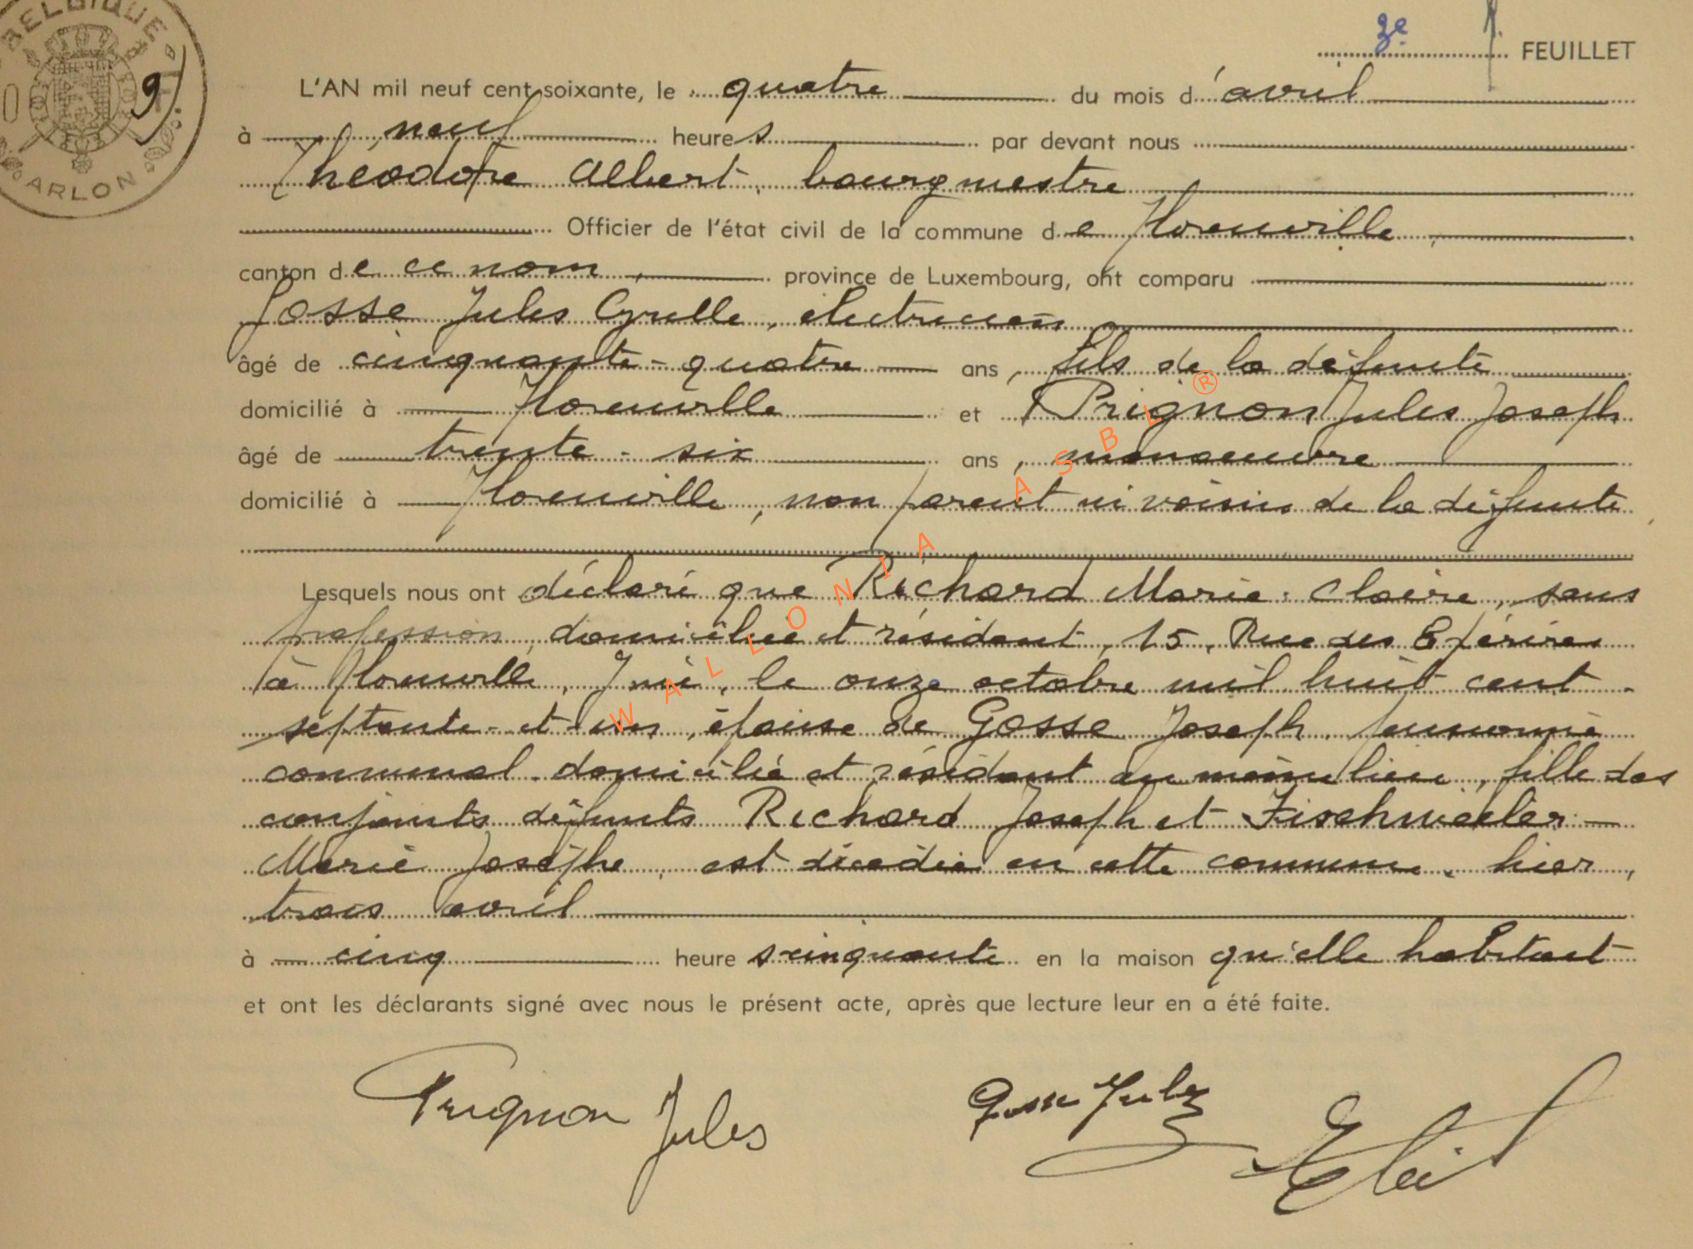 BELGIQUE
ARLON
9
3e FEUILLET
L'AN mil neuf cent soixante, le quatre du mois d'avril
à neuf heures par devant nous
Théodore Albert, bourgmestre
Officier de l'état civil de la commune de Florenville,
canton de ce nom, province de Luxembourg, ont comparu
Gosse Jules Cyrille, électricien
âgé de cinquante-quatre ans, fils de la défunte
domicilié à Florenville et Prignon Jules Joseph
âgé de trente-six ans, manoeuvre
domicilié à Florenville, non parent ni voisin de la défunte
Lesquels nous ont déclaré que Richard Marie-Claire, sans
profession, domiciliée et résidant, 15, Rue des Epérires
à Florenville, y née, le onze octobre mil huit cent
septante-et-un, épouse de Gosse Joseph, pensionné
communal, domicilié et résidant au même lieu, fille des
conjoints défunts Richard Joseph et Fischweiler
Marie Josèphe, est décédée en cette commune, hier,
trois avril
à cinq heures cinquante en la maison qu'elle habitait
et ont les déclarants signé avec nous le présent acte, après que lecture leur en a été faite.
Prignon Jules
Gosse Jules
WALLONIA ASBL ®